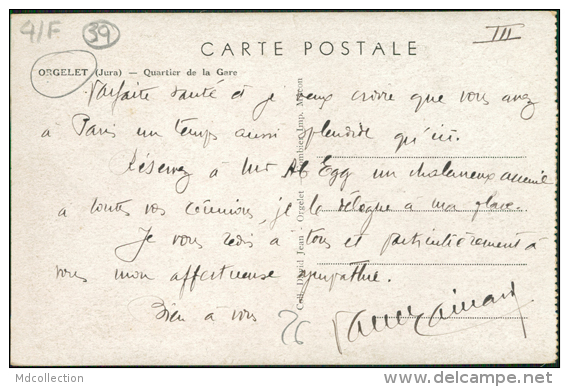 4/F 39
III
CARTE POSTALE
ORGELET (Jura) — Quartier de la Gare
Parfaite santé et je veux croire que vous avez
à Paris un temps aussi splendide qu'ici.
Réservez à Mr Ab Egg un chaleureux accueil
à toutes vos réunions, je le délègue à ma place.
Je vous redis à tous et particulièrement à
vous mon affectueuse sympathie.
Bien à vous
Coll. David Jean - Orgelet Combier Imp. Macon
Mdcollection
www.delcampe.net